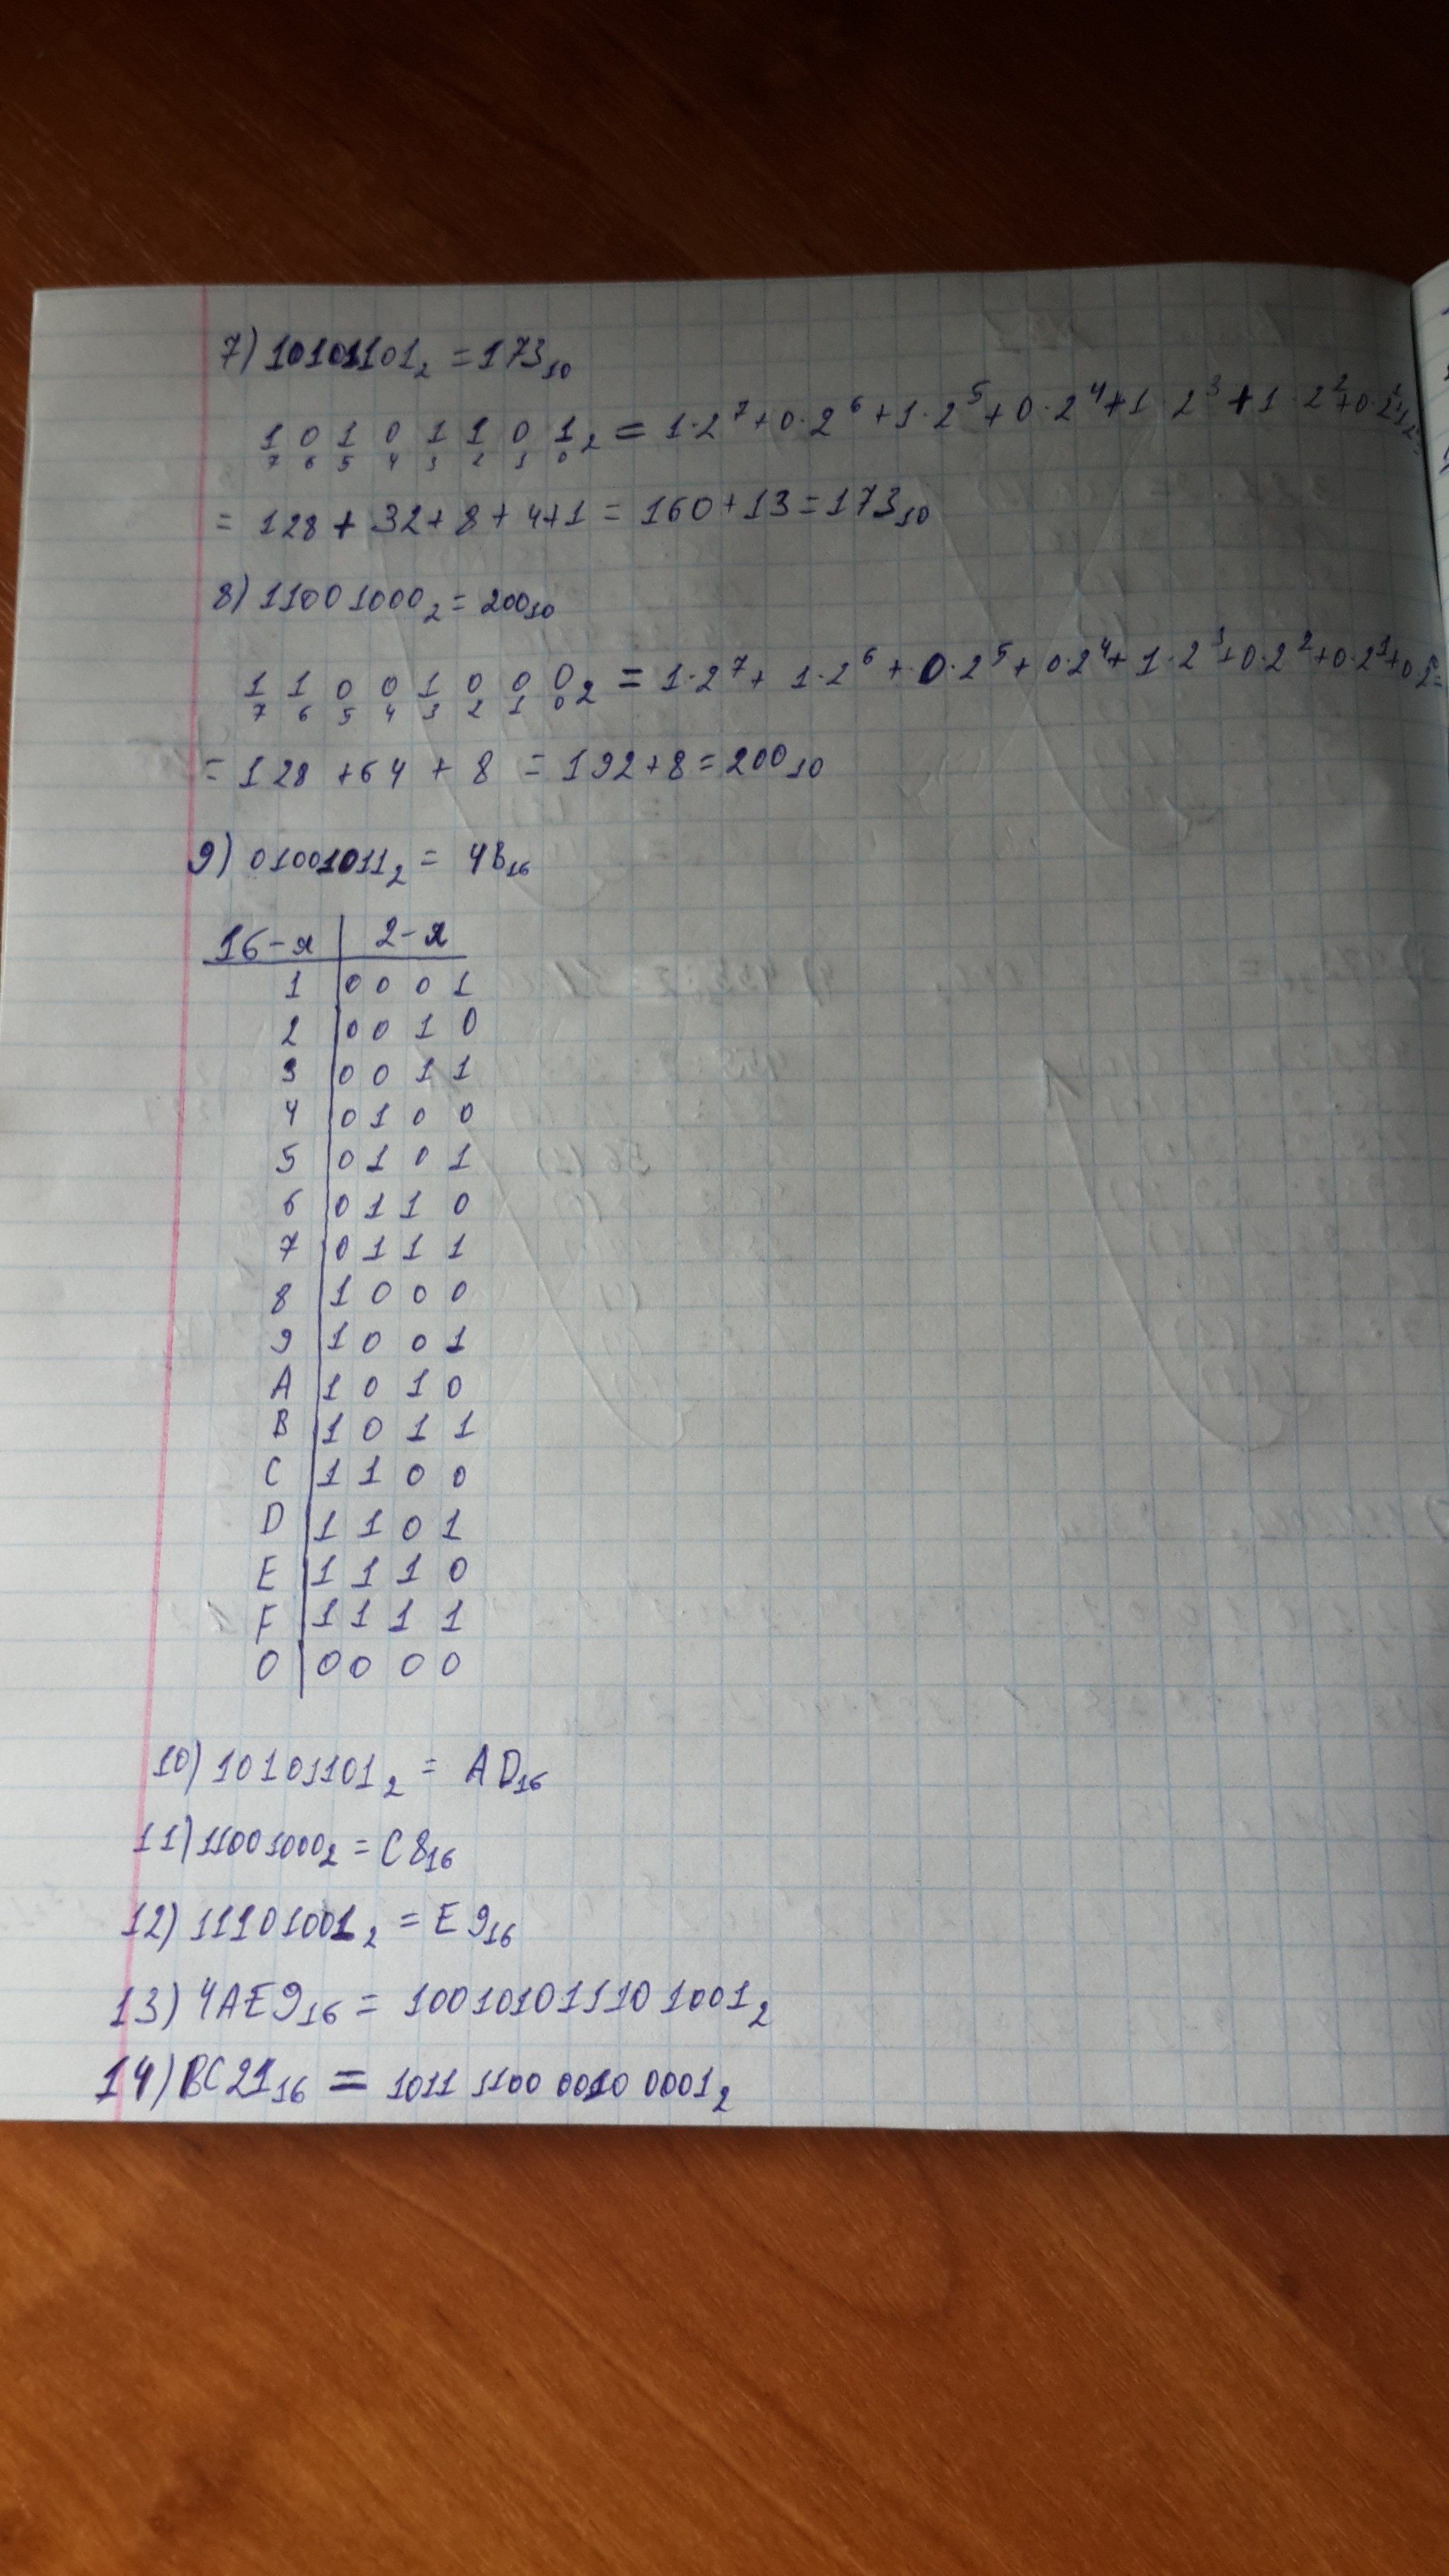 7) 10101101₂ = 173₁₀
1 0 1 0 1 1 0 1₂ = 1·2⁷+0·2⁶+1·2⁵+0·2⁴+1·2³+1·2²+0·2¹
7 6 5 4 3 2 1 0
= 128 + 32 + 8 + 4+1 = 160+13=173₁₀
8) 11001000₂ = 200₁₀
1 1 0 0 1 0 0 0₂ = 1·2⁷+ 1·2⁶ + 0·2⁵ + 0·2⁴+ 1·2³+0·2²+0·2¹+0·2⁰=
7 6 5 4 3 2 1 0
= 128 +64 + 8 = 192+8=200₁₀
9) 01001011₂ = 4B₁₆
16-я 2-я
1 0 0 0 1
2 0 0 1 0
3 0 0 1 1
4 0 1 0 0
5 0 1 0 1
6 0 1 1 0
7 0 1 1 1
8 1 0 0 0
9 1 0 0 1
A 1 0 1 0
B 1 0 1 1
C 1 1 0 0
D 1 1 0 1
E 1 1 1 0
F 1 1 1 1
0 0 0 0 0
10) 10101101₂ = AD₁₆
11) 11001000₂ = C8₁₆
12) 11101001₂ = E9₁₆
13) 4AE9₁₆ = 100101011101001₂
14) BC21₁₆ = 1011 1100 0010 0001₂